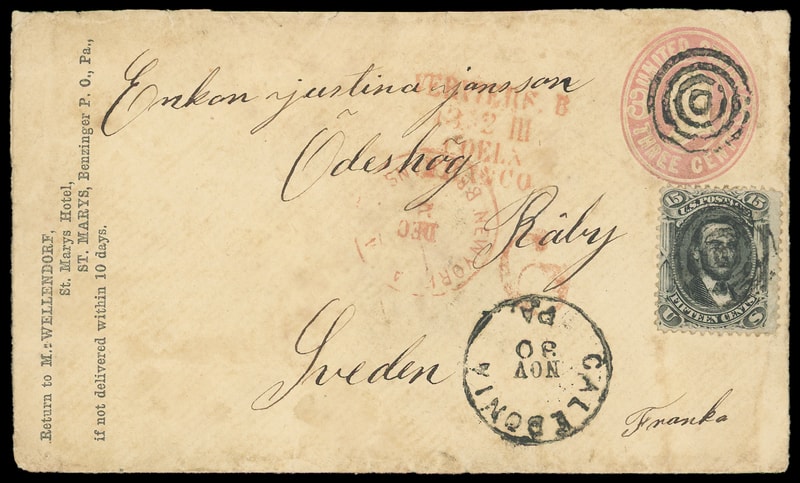 Return to M. WELLENDORF,
St. Marys Hotel,
ST. MARYS, Benzinger P. O., Pa.,
if not delivered within 10 days.
Enkan justina jansson
Ödeshög
Råby
Sveden
Franka
VERVIERS. B
2 III
COELN
& CO
NEW YORK
DEC
CALEDONIA
NOV
30
PA.
UNITED
THREE CEN
15 U.S. POSTAGE 15
FIFTEEN CENTS
U S